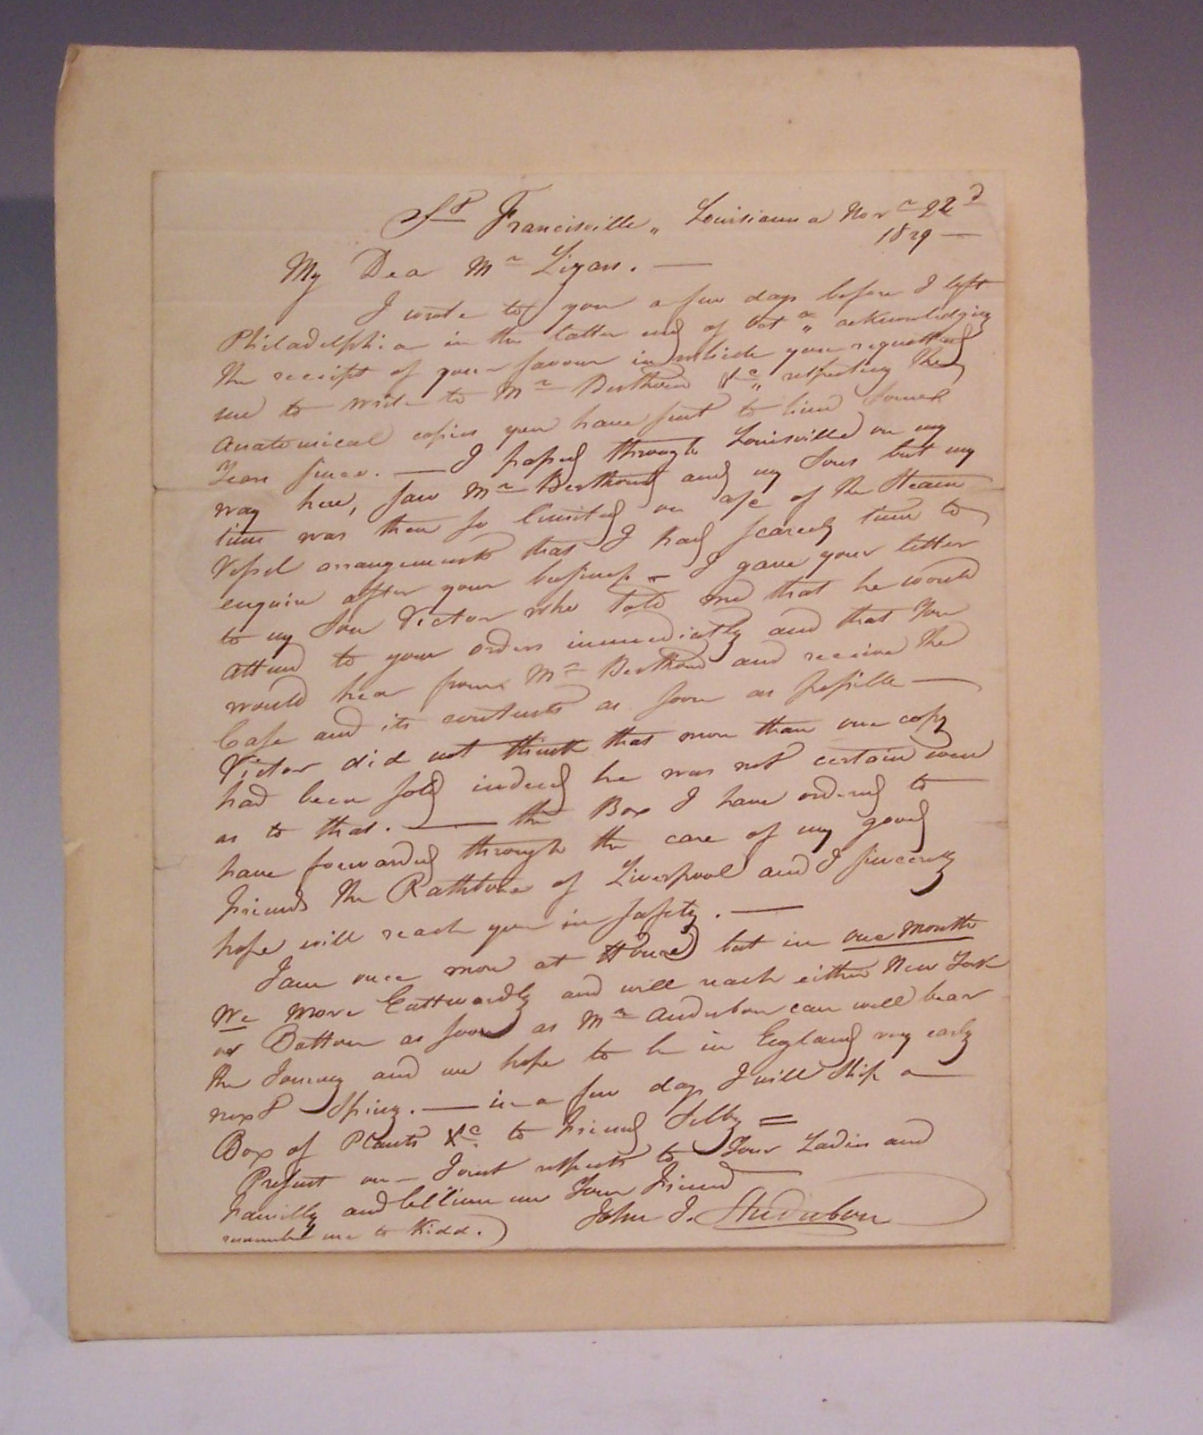 St Francisville, Louisianna Novr 22d
1829 —
My Dear Mr Lizars. —
I wrote to you a few days before I left
Philadelphia in the latter end of Octr, acknowledging
the receipt of your favour in which you requested
me to write to Mr Berthoud &c, respecting the
anatomical copies you have sent to him some
Years since. — I passed through Louisville on my
way here, saw Mr Berthoud and my Sons but my
time was then so limited on a/c of the Steam
Vessel arrangements that I had scarcely time to
enquire after your business — I gave your letter
to my Son Victor who told me that he would
attend to your orders immediatly and that You
would hear from Mr Berthoud and receive the
Case and its contents as soon as possible —
Victor did not think that more than one copy
had been sold indeed he was not certain even
as to that. — the Box I have ordered to
have forwarded through the care of my good
friends the Rathbone of Liverpool and I sincerely
hope will reach you in safety. —
I am once more at Home but in one month
We move Eastwardly and will reach either New York
or Boston as soon as Mrs Audubon can well bear
the Journey and we hope to be in England very early
next Spring. — in a few days I will ship a
Box of Plants &c to friend Selby =
Present our Joint respects to Your Ladies and
familly and believe me Your friend
John J. Audubon
remember me to Kidd.